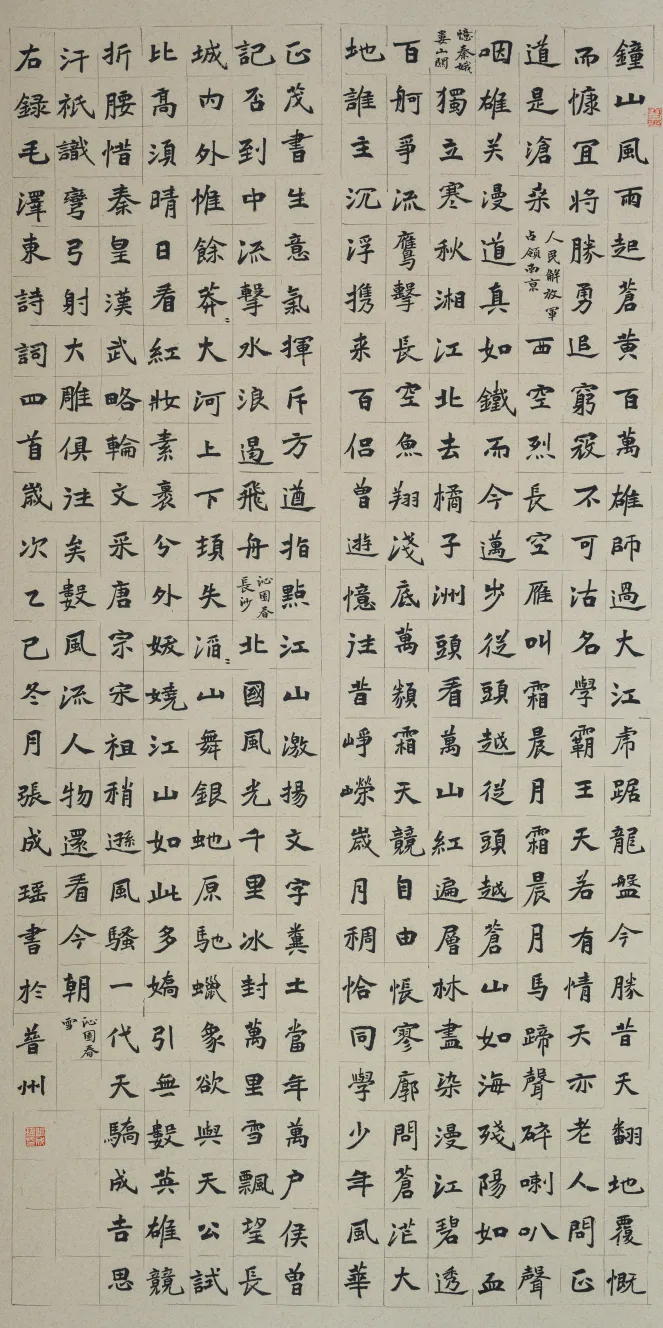 鐘山風雨起蒼黄百萬雄師過大江虎踞龍盤今勝昔天翻地覆慨
而慷宜將勝勇追窮寇不可沽名學霸王天若有情天亦老人問正
道是滄桑人民解放軍占領南京西空烈長空雁叫霜晨月霜晨月馬蹄聲碎喇叭聲
咽雄关漫道真如鐵而今邁步從頭越從頭越蒼山如海殘陽如血
憶秦娥婁山關獨立寒秋湘江北去橘子洲頭看萬山紅遍層林盡染漫江碧透
百舸爭流鷹擊長空魚翔淺底萬類霜天競自由悵寥廓問蒼茫大
地誰主沉浮携来百侣曾遊憶往昔崢嶸歲月稠恰同學少年風華
正茂書生意氣揮斥方遒指點江山激揚文字糞土當年萬户侯曾
記否到中流擊水浪遏飛舟沁園春長沙北國風光千里冰封萬里雪飄望長
城内外惟餘莽〻大河上下頓失滔〻山舞銀虵原馳蠟象欲與天公試
比高須晴日看紅妝素裹分外妖嬈江山如此多嬌引無數英雄競
折腰惜秦皇漢武略輪文采唐宗宋祖稍遜風騷一代天驕成吉思
汗祇識彎弓射大雕俱往矣數風流人物還看今朝沁園春雪
右錄毛澤東詩詞四首歲次乙巳冬月張成瑶書於普州